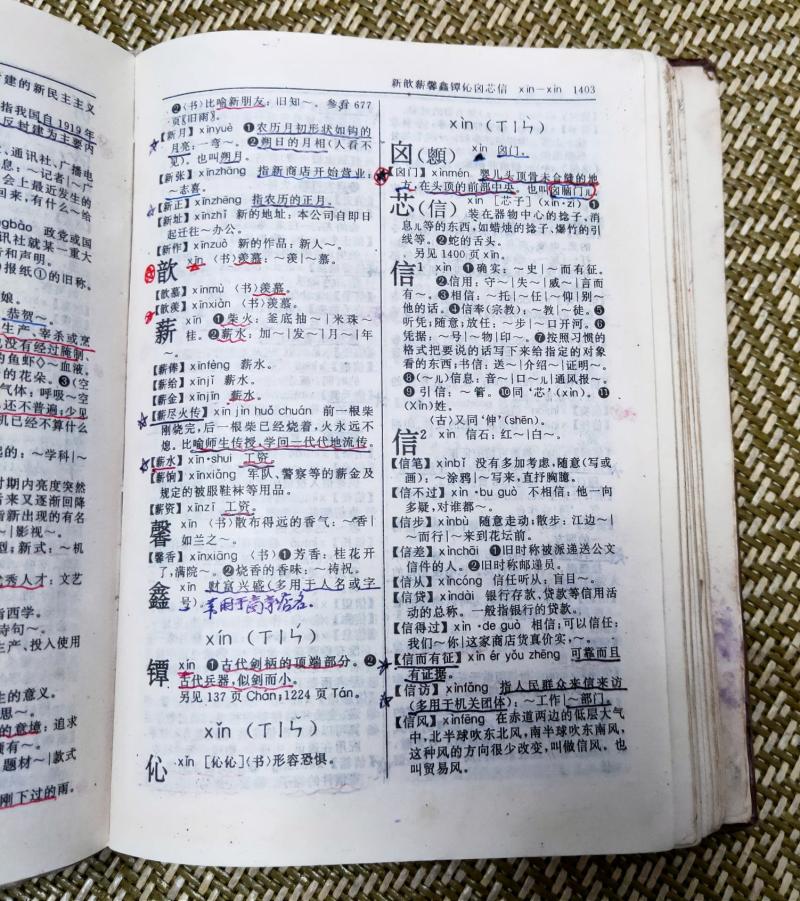 建的新民主主义
指我国自1919年
反封建为主要内
、通讯社、广播电
息:~记者|~广
会上最近发生的
回来,有什么~给
ngbào 政党或国
讯社就某一重大
析和声明。
报纸①的旧称。
娘。
恭贺~。
生产、宰杀或烹
没有经过腌制、
的鱼虾◇~血液。
的花朵。❸(空
气体:呼吸~空
还不普遍;少见
机已经不算什么
起的:~学科|~
时期内亮度突然
后来又逐渐回降
指新出现的有名
|影视~。
型;新式:~机
优秀人才:文艺
指西学。
诗句~。
生产、投入使用
生的意义。
思~。
的意境:追求
颇有~。
题材~|款式
刚下过的雨。
新歆薪馨鑫镡伈囟芯信 xīn—xìn 1403
❷〈书〉比喻新朋友:旧知~。参看677
页〖旧雨〗。
【新月】xīnyuè ❶农历月初形状如钩的
月亮:一弯~。❷朔日的月相(人看不
见)。也叫朔月。
【新张】xīnzhāng 指新商店开始营业:
~志喜。
【新正】xīnzhēng 指农历的正月。
【新址】xīnzhǐ 新的地址:本公司自即日
起迁往~办公。
【新作】xīnzuò 新的作品:新人~。
歆 xīn 〈书〉羡慕:~羡|~慕。
【歆慕】xīnmù 〈书〉羡慕。
【歆羡】xīnxiàn 〈书〉羡慕。
薪 xīn ❶柴火:釜底抽~|米珠~
桂。❷薪水:加~|发~|月~|年
~。
【薪俸】xīnfèng 薪水。
【薪给】xīnjǐ 薪水。
【薪金】xīnjīn 薪水。
【薪尽火传】xīn jìn huǒ chuán 前一根柴
刚烧完,后一根柴已经烧着,火永远不
熄。比喻师生传授,学问一代代地流传。
【薪水】xīn·shui 工资。
【薪饷】xīnxiǎng 军队、警察等的薪金及
规定的被服鞋袜等用品。
【薪资】xīnzī 工资。
馨 xīn 〈书〉散布得远的香气:~香|
如兰之~。
【馨香】xīnxiāng 〈书〉❶芳香:桂花开
了,满院~。❷烧香的香味:~祷祝。
鑫 xīn 财富兴盛(多用于人名或字
号)。常用于商业店名。
xín (ㄒㄧㄣˊ)
镡 xín ❶古代剑柄的顶端部分。❷
古代兵器,似剑而小。
另见137页 Chán;1224页 Tán。
xǐn (ㄒㄧㄣˇ)
伈 xǐn [伈伈]〈书〉形容恐惧。
xìn (ㄒㄧㄣˋ)
囟(顖) xìn 囟门。
【囟门】xìnmén 婴儿头顶骨未合缝的地
方,在头顶的前部中央。也叫囟脑门儿。
芯(信) xìn [芯子](xìn·zi)❶
装在器物中心的捻子、消
息儿等的东西,如蜡烛的捻子、爆竹的引
线等。❷蛇的舌头。
另见1400页 xīn。
信¹ xìn ❶确实:~史|~而有征。
❷信用:守~|失~|威~|言而
有~。❸相信:~托|~任|~仰|别~
他的话。❹信奉(宗教):~教|~徒。❺
听凭;随意;放任:~步|~口开河。❻
凭据:~号|~物|印~。❼按照习惯的
格式把要说的话写下来给指定的对象
看的东西;书信:送~|介绍~|证明~。
❽(~儿)信息:音~|口~儿|通风报~。
❾引信:~管。❿同‘芯’(xìn)。⓫
(Xìn)姓。
〈古〉又同‘伸’(shēn)。
信² xìn 信石:红~|白~。
【信笔】xìnbǐ 没有多加考虑,随意(写或
画):~涂鸦|~写来,直抒胸臆。
【信不过】xìn·bu guò 不相信:他一向
多疑,对谁都~。
【信步】xìnbù 随意走动;散步:江边~|
~而行|~来到花坛前。
【信差】xìnchāi ❶旧时称被派递送公文
信件的人。❷旧时称邮递员。
【信从】xìncóng 信任听从:盲目~。
【信贷】xìndài 银行存款、贷款等信用活
动的总称。一般指银行的贷款。
【信得过】xìn·de guò 相信;可以信任:
我们~你|这家商店货真价实,~。
【信而有征】xìn ér yǒu zhēng 可靠而且
有证据。
【信访】xìnfǎng 指人民群众来信来访
(多用于机关团体):~工作|~部门。
【信风】xìnfēng 在赤道两边的低层大气
中,北半球吹东北风,南半球吹东南风,
这种风的方向很少改变,叫做信风。也
叫贸易风。